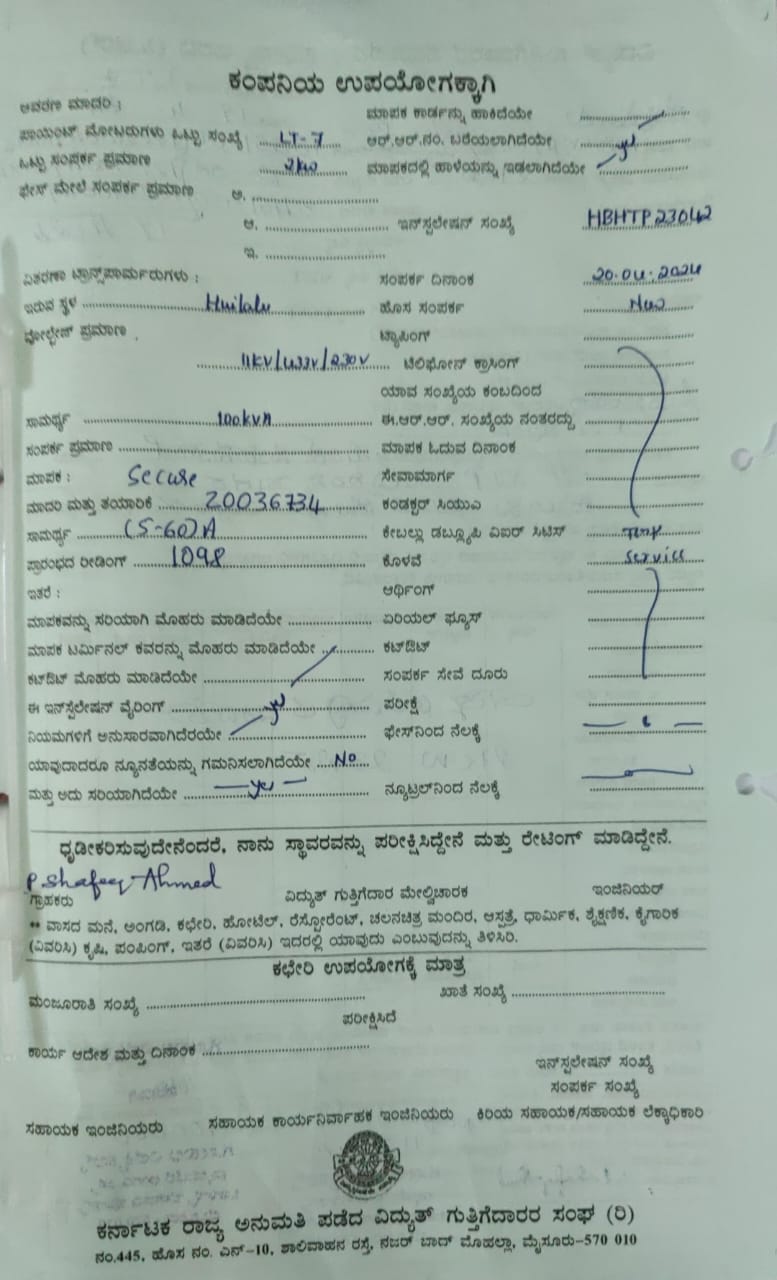 ಕಂಪನಿಯ ಉಪಯೋಗಕ್ಕಾಗಿ
ಆವರಣ ಮಾದರಿ : ಮಾಪಕ ಕಾರ್ಡನ್ನು ಹಾಕಿದೆಯೇ
ಪಾಯಿಂಟ್ ಮೋಟರುಗಳು ಒಟ್ಟು ಸಂಖ್ಯೆ LT-7 ಆರ್.ಆರ್.ನಂ. ಬರೆಯಲಾಗಿದೆಯೇ
ಒಟ್ಟು ಸಂಪರ್ಕ ಪ್ರಮಾಣ 2kw ಮಾಪಕದಲ್ಲಿ ಹಾಳೆಯನ್ನು ಇಡಲಾಗಿದೆಯೇ yes
ಫೇಸ್ ಮೇಲೆ ಸಂಪರ್ಕ ಪ್ರಮಾಣ ಅ.
ಆ. ಇನ್‌ಸ್ಟಲೇಷನ್ ಸಂಖ್ಯೆ HBHTP23042
ಇ.
ವಿತರಣಾ ಟ್ರಾನ್ಸ್‌ಫಾರ್ಮರುಗಳು : ಸಂಪರ್ಕ ದಿನಾಂಕ 20.04.2024
ಇರುವ ಸ್ಥಳ Huilalu ಹೊಸ ಸಂಪರ್ಕ New
ವೋಲ್ಟೇಜ್ ಪ್ರಮಾಣ ಟ್ಯಾಪಿಂಗ್
11KV/433V/230V ಟೆಲಿಫೋನ್ ಕ್ರಾಸಿಂಗ್
ಯಾವ ಸಂಖ್ಯೆಯ ಕಂಬದಿಂದ
ಸಾಮರ್ಥ್ಯ 100kVA ಈ.ಆರ್.ಆರ್. ಸಂಖ್ಯೆಯ ನಂತರದ್ದು
ಸಂಪರ್ಕ ಪ್ರಮಾಣ ಮಾಪಕ ಓದುವ ದಿನಾಂಕ
ಮಾಪಕ : Secure ಸೇವಾಮಾರ್ಗ
ಮಾದರಿ ಮತ್ತು ತಯಾರಿಕೆ 20036734 ಕಂಡಕ್ಟರ್ ಸಿಯುಎ
ಸಾಮರ್ಥ್ಯ (5-60)A ಕೇಬಲ್ಲು ಡಬ್ಲ್ಯೂಪಿ ವಿಐಆರ್ ಸಿಟಿಸ್
ಪ್ರಾರಂಭದ ರೀಡಿಂಗ್ 1098 ಕೊಳವೆ Service
ಇತರೆ : ಆರ್ಥಿಂಗ್
ಮಾಪಕವನ್ನು ಸರಿಯಾಗಿ ಮೊಹರು ಮಾಡಿದೆಯೇ ಏರಿಯಲ್ ಫ್ಯೂಸ್
ಮಾಪಕ ಟರ್ಮಿನಲ್ ಕವರನ್ನು ಮೊಹರು ಮಾಡಿದೆಯೇ ಕಟ್‌ಔಟ್
ಕಟ್‌ಔಟ್ ಮೊಹರು ಮಾಡಿದೆಯೇ ಸಂಪರ್ಕ ಸೇವೆ ದೂರು
ಈ ಇನ್‌ಸ್ಟಲೇಷನ್ ವೈರಿಂಗ್ yes ಪರೀಕ್ಷೆ
ನಿಯಮಗಳಿಗೆ ಅನುಸಾರವಾಗಿದೆಯೇ ಫೇಸ್‌ನಿಂದ ನೆಲಕ್ಕೆ
ಯಾವುದಾದರೂ ನ್ಯೂನತೆಯನ್ನು ಗಮನಿಸಲಾಗಿದೆಯೇ No
ಮತ್ತು ಅದು ಸರಿಯಾಗಿದೆಯೇ yes ನ್ಯೂಟ್ರಲ್‌ನಿಂದ ನೆಲಕ್ಕೆ
ಧೃಡೀಕರಿಸುವುದೇನೆಂದರೆ, ನಾನು ಸ್ಥಾವರವನ್ನು ಪರೀಕ್ಷಿಸಿದ್ದೇನೆ ಮತ್ತು ರೇಟಿಂಗ್ ಮಾಡಿದ್ದೇನೆ.
P. Shafeeq Ahmed
ಗ್ರಾಹಕರು ವಿದ್ಯುತ್ ಗುತ್ತಿಗೆದಾರ ಮೇಲ್ವಿಚಾರಕ ಇಂಜಿನಿಯರ್
** ವಾಸದ ಮನೆ, ಅಂಗಡಿ, ಕಛೇರಿ, ಹೋಟೆಲ್, ರೆಸ್ಟೋರೆಂಟ್, ಚಲನಚಿತ್ರ ಮಂದಿರ, ಆಸ್ಪತ್ರೆ, ಧಾರ್ಮಿಕ, ಶೈಕ್ಷಣಿಕ, ಕೈಗಾರಿಕೆ
(ವಿವರಿಸಿ) ಕೃಷಿ, ಪಂಪಿಂಗ್, ಇತರೆ (ವಿವರಿಸಿ) ಇದರಲ್ಲಿ ಯಾವುದು ಎಂಬುವುದನ್ನು ತಿಳಿಸಿರಿ.
ಕಛೇರಿ ಉಪಯೋಗಕ್ಕೆ ಮಾತ್ರ
ಮಂಜೂರಾತಿ ಸಂಖ್ಯೆ ಖಾತೆ ಸಂಖ್ಯೆ
ಪರೀಕ್ಷಿಸಿದೆ
ಕಾರ್ಯ ಆದೇಶ ಮತ್ತು ದಿನಾಂಕ
ಇನ್‌ಸ್ಟಲೇಷನ್ ಸಂಖ್ಯೆ
ಸಂಪರ್ಕ ಸಂಖ್ಯೆ
ಸಹಾಯಕ ಇಂಜಿನಿಯರು ಸಹಾಯಕ ಕಾರ್ಯನಿರ್ವಾಹಕ ಇಂಜಿನಿಯರು ಕಿರಿಯ ಸಹಾಯಕ/ಸಹಾಯಕ ಲೆಕ್ಕಾಧಿಕಾರಿ
ಕರ್ನಾಟಕ ರಾಜ್ಯ ಅನುಮತಿ ಪಡೆದ ವಿದ್ಯುತ್ ಗುತ್ತಿಗೆದಾರರ ಸಂಘ (ರಿ)
ನಂ.445, ಹೊಸ ನಂ. ಎನ್-10, ಶಾಲಿವಾಹನ ರಸ್ತೆ, ನಜರ್ ಬಾದ್ ಮೊಹಲ್ಲಾ, ಮೈಸೂರು-570 010